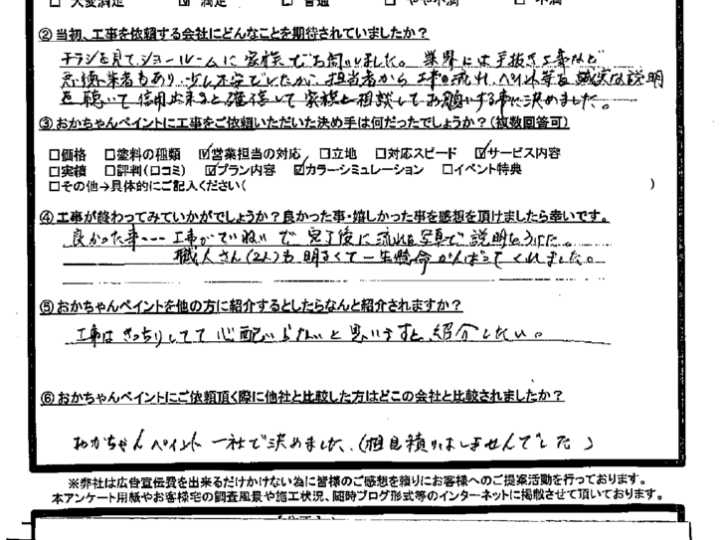 □大変満足 ☑満足 □普通 □やや不満 □不満
②当初、工事を依頼する会社にどんなことを期待されていましたか?
チラシを見てショールームに家族でお伺いしました。業界には手抜き工事など
悪徳業者もあり少し不安でしたが、担当者から工事の流れ、ペイント等を誠実な説明
を聴いて信用出来ると確信して家族と相談してお願いする事に決めました。
③おかちゃんペイントに工事をご依頼いただいた決め手は何だったでしょうか?(複数回答可)
□価格 □塗料の種類 ☑営業担当の対応 □立地 □対応スピード ☑サービス内容
□実績 □評判(口コミ) ☑プラン内容 ☑カラーシミュレーション □イベント特典
□その他→具体的にご記入ください( )
④工事が終わってみていかがでしょうか?良かった事・嬉しかった事を感想を頂けましたら幸いです。
良かった事--- 工事がていねいで 完了後に流れを写真で説明をうけた。
職人さん(2人)も明るくて一生懸命がんばってくれました。
⑤おかちゃんペイントを他の方に紹介するとしたらなんと紹介されますか?
工事はきっちりしてて心配いらないと思いますと、紹介したい。
⑥おかちゃんペイントにご依頼頂く際に他社と比較した方はどこの会社と比較されましたか?
おかちゃんペイント一社で決めました、(相見積りはしませんでした)
※弊社は広告宣伝費を出来るだけかけない為に皆様のご感想を頼りにお客様へのご提案活動を行っております。
本アンケート用紙やお客様宅の調査風景や施工状況、随時ブログ形式等のインターネットに掲載させて頂いております。